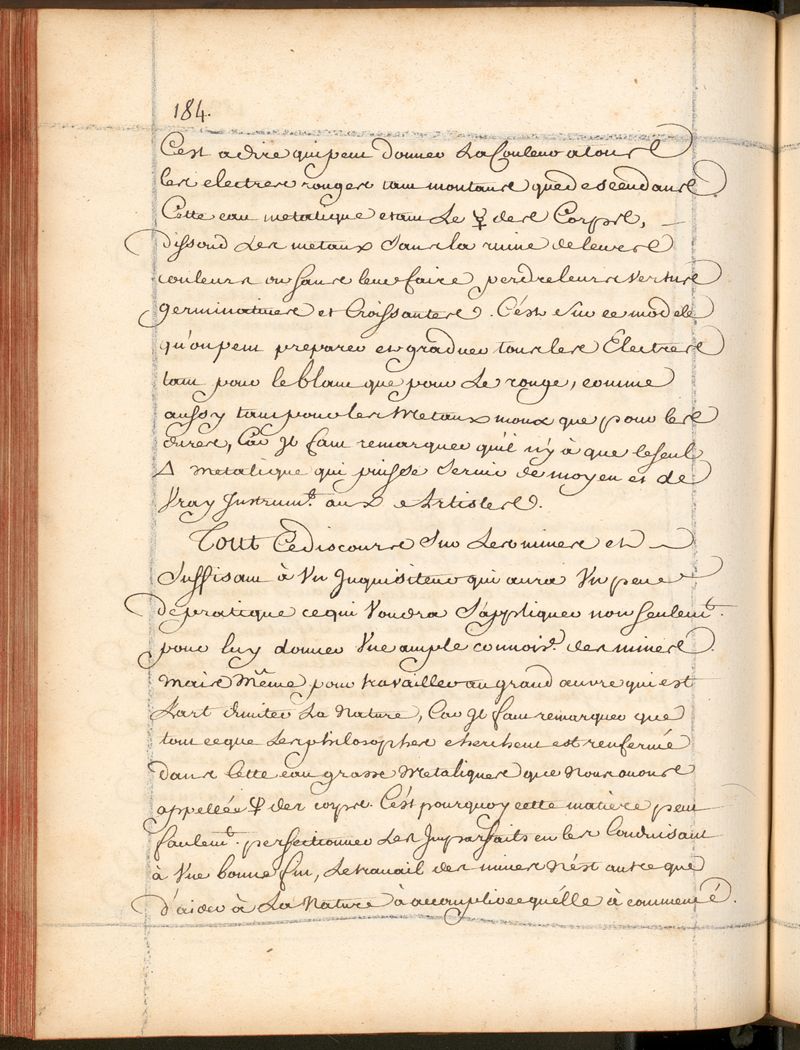 184.
C'est a dire qui peut donner La Couleur a tous
les electres rouges tant montans que descendans
Cette eau metalique etant Le ☿ des Corps,
dissoud Les metaux sans la ruine de leurs
couleurs ou sans leur faire perdre leurs vertus
germinatives et Croissantes. C'est sur ce modele
qu'on peut preparer et graduer tous les Electres
tant pour le blanc que pour Le rouge, comme
aussy tant pour les Metaux moux que pour les
durs, Car Jl faut remarquer qu'il n'y à que le seul
△ metalique qui puisse servir de moyen et de
Vray Jnstrumt. aux Artistes.
Tout Ce discours sur Les mines est
suffisant à Vn Jnquisiteur qui aura Vn peu
de pratique ce qui Voudra s'appliquer non seulemt.
pour luy donner Vne ample connoise. des mines
mais Même pour travailler au grand œuvre qui est
L'art d'imiter La Nature, Car Jl faut remarquer que
tout ce que Les philosophes cherchent est renfermé
dans Cette eau grasse Metalique que Nous avons
appellée ☿ des corps. C'est pourquoy cette matiere peut
seulemt. perfectionner Les Jmparfaits en les Conduisant
à Vne bonne fin, Le travail des mines N'est autre que
d'aider à La Nature à accomplir ce qu'elle à commencé.